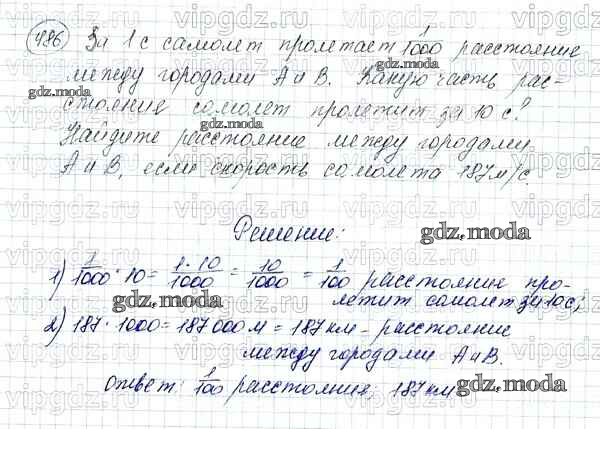 486 За 1 с самолет пролетает 1/1000 расстояние
между городами А и В. Какую часть рас-
стояние самолет пролетит за 10 с?
Найдите расстояние между городами
А и В, если скорость самолета 187 м/с.
Решение:
1) 1/1000 · 10 = 1·10/1000 = 10/1000 = 1/100 расстояние про-
летит самолет за 10с;
2) 187 · 1000 = 187 000 м = 187 км - расстояние
между городами А и В.
Ответ: 1/100 расстояние; 187 км
gdz.moda
gdz.moda
gdz.moda
gdz.moda
gdz.moda
gdz.moda
vipgdz.ru